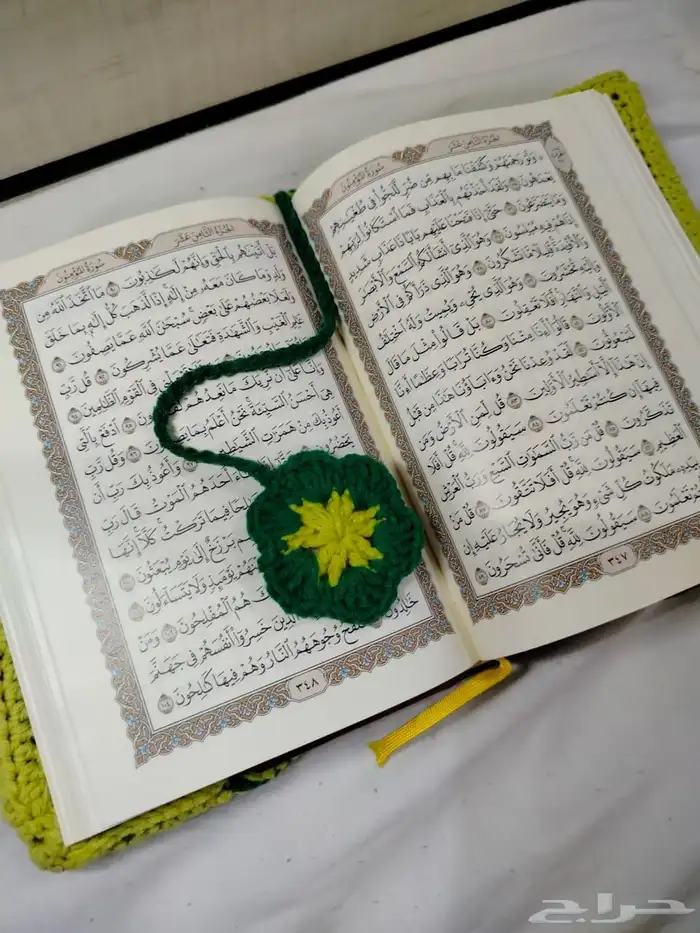 سُورَةُ المُؤْمِنُونَ
الجُزْءُ الثَّامِنَ عَشَرَ
۞ وَلَوْ رَحِمْنَٰهُمْ وَكَشَفْنَا مَا بِهِم مِّن ضُرٍّ لَّلَجُّوا۟ فِى طُغْيَٰنِهِمْ
يَعْمَهُونَ ٧٥ وَلَقَدْ أَخَذْنَٰهُم بِٱلْعَذَابِ فَمَا ٱسْتَكَانُوا۟ لِرَبِّهِمْ
وَمَا يَتَضَرَّعُونَ ٧٦ حَتَّىٰٓ إِذَا فَتَحْنَا عَلَيْهِم بَابًا ذَا عَذَابٍ شَدِيدٍ
إِذَا هُمْ فِيهِ مُبْلِسُونَ ٧٧ وَهُوَ ٱلَّذِىٓ أَنشَأَ لَكُمُ ٱلسَّمْعَ وَٱلْأَبْصَٰرَ
وَٱلْأَفْـِٔدَةَ قَلِيلًا مَّا تَشْكُرُونَ ٧٨ وَهُوَ ٱلَّذِى ذَرَأَكُمْ فِى ٱلْأَرْضِ
وَإِلَيْهِ تُحْشَرُونَ ٧٩ وَهُوَ ٱلَّذِى يُحْىِۦ وَيُمِيتُ وَلَهُ ٱخْتِلَٰفُ
ٱلَّيْلِ وَٱلنَّهَارِ أَفَلَا تَعْقِلُونَ ٨٠ بَلْ قَالُوا۟ مِثْلَ مَا قَالَ
ٱلْأَوَّلُونَ ٨١ قَالُوٓا۟ أَءِذَا مِتْنَا وَكُنَّا تُرَابًا وَعِظَٰمًا أَءِنَّا
لَمَبْعُوثُونَ ٨٢ لَقَدْ وُعِدْنَا نَحْنُ وَءَابَآؤُنَا هَٰذَا مِن قَبْلُ
إِنْ هَٰذَآ إِلَّآ أَسَٰطِيرُ ٱلْأَوَّلِينَ ٨٣ قُل لِّمَنِ ٱلْأَرْضُ وَمَن
فِيهَآ إِن كُنتُمْ تَعْلَمُونَ ٨٤ سَيَقُولُونَ لِلَّهِ قُلْ أَفَلَا
تَذَكَّرُونَ ٨٥ قُلْ مَن رَّبُّ ٱلسَّمَٰوَٰتِ ٱلسَّبْعِ وَرَبُّ ٱلْعَرْشِ
ٱلْعَظِيمِ ٨٦ سَيَقُولُونَ لِلَّهِ قُلْ أَفَلَا تَتَّقُونَ ٨٧ قُلْ مَنۢ
مَلَكُوتُ كُلِّ شَىْءٍ وَهُوَ يُجِيرُ وَلَا يُجَارُ عَلَيْهِ إِن
تَعْلَمُونَ ٨٨ سَيَقُولُونَ لِلَّهِ قُلْ فَأَنَّىٰ تُسْحَرُونَ ٨٩
٣٤٧
الجُزْءُ الثَّامِنَ عَشَرَ
سُورَةُ المُؤْمِنُونَ
بَلْ أَتَيْنَٰهُم بِٱلْحَقِّ وَإِنَّهُمْ لَكَٰذِبُونَ ٩٠ مَا ٱتَّخَذَ ٱللَّهُ مِن
وَلَدٍ وَمَا كَانَ مَعَهُۥ مِنْ إِلَٰهٍ إِذًا لَّذَهَبَ كُلُّ إِلَٰهٍۭ بِمَا خَلَقَ
وَلَعَلَا بَعْضُهُمْ عَلَىٰ بَعْضٍ سُبْحَٰنَ ٱللَّهِ عَمَّا يَصِفُونَ ٩١
عَٰلِمِ ٱلْغَيْبِ وَٱلشَّهَٰدَةِ فَتَعَٰلَىٰ عَمَّا يُشْرِكُونَ ٩٢ قُل رَّبِّ
فِى ٱلْقَوْمِ ٱلظَّٰلِمِينَ ٩٤
وَإِنَّا عَلَىٰٓ أَن نُّرِيَكَ مَا نَعِدُهُمْ ٱدْفَعْ بِٱلَّتِى
هِىَ أَحْسَنُ ٱلسَّيِّئَةَ نَحْنُ أَعْلَمُ بِمَا وَقُل رَّبِّ
أَعُوذُ بِكَ مِنْ هَمَزَٰتِ ٱلشَّيَٰطِينِ ٩٧ وَأَعُوذُ بِكَ رَبِّ أَن
أَحَدَهُمُ ٱلْمَوْتُ قَالَ رَبِّ
فِيمَا تَرَكْتُ كَلَّآ إِنَّهَا
بَرْزَخٌ إِلَىٰ يَوْمِ يُبْعَثُونَ ١٠٠
يَوْمَئِذٍ وَلَا يَتَسَآءَلُونَ ١٠١
هُمُ ٱلْمُفْلِحُونَ ١٠٢ وَمَنْ
ٱلَّذِينَ خَسِرُوٓا۟ أَنفُسَهُمْ فِى جَهَنَّمَ
خَٰلِدُونَ تَلْفَحُ وُجُوهَهُمُ ٱلنَّارُ وَهُمْ فِيهَا كَٰلِحُونَ ١٠٤
٣٤٨
حراج